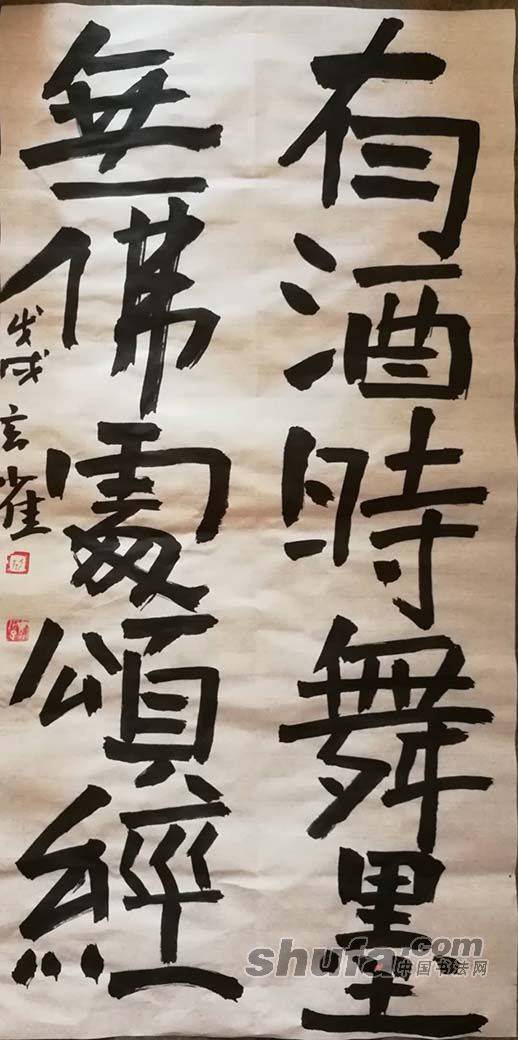 有酒時舞墨
無佛處頌經
戊戌玄雀
shufa.com
中国书法网